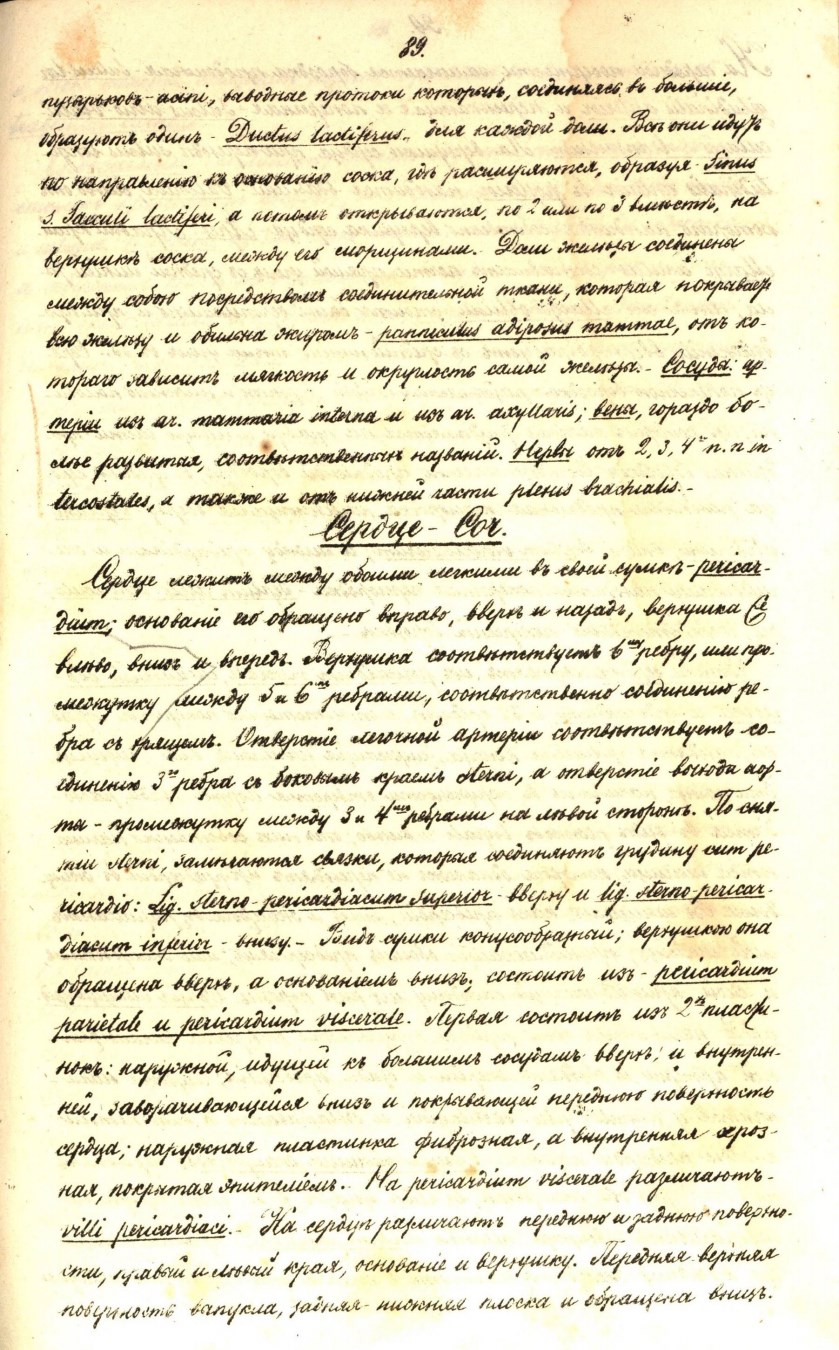 89.
пузырьковъ - acini, выводные протоки которыхъ, соединяясь въ большіе,
образуютъ одинъ - Ductus lactiferus - для каждой доли. Всѣ они идутъ
по направленію къ основанію соска, гдѣ расширяются, образуя - Sinus
s. Sacculi lactiferi, а потомъ открываются, по 2 или по 3 вмѣстѣ, на
верхушкѣ соска, между его морщинами. - Доли железы соединены
между собою посредствомъ соединительной ткани, которая покрываетъ
всю железу и обильна жиромъ - panniculus adiposus mammae, отъ ко-
тораго зависитъ мягкость и округлость самой железы. - Сосуды: ар-
теріи изъ ar. mammaria interna и изъ ar. axyllaris; вены, гораздо бо-
лѣе развитыя, соотвѣтственныхъ названій. Нервы отъ 2, 3, 4 n. n in
tercostales, а также и отъ нижней части plexus brachialis. -
Сердце - Cor.
Сердце лежитъ между обоими легкими въ своей сумкѣ - pericar-
dium; основаніе его обращено вправо, вверхъ и назадъ, верхушка
влѣво, внизъ и впередъ. Верхушка соотвѣтствуетъ 6му ребру, или про-
межутку между 5 и 6 ребрами, соотвѣтственно соединенію ре-
бра съ хрящемъ. Отверстіе легочной артеріи соотвѣтствуетъ со-
единенію 3 ребра съ боковымъ краемъ sterni, а отверстіе восходя аор-
ты - промежутку между 3 и 4 ребрами на лѣвой сторонѣ. По сня-
тіи sterni, замѣчаются связки, которыя соединяютъ грудину cum pe-
ricardio: Lig. sterno-pericardiacum superior - вверху и lig. sterno-pericar-
diacum inferior - внизу. - Видъ сумки конусообразный; верхушкою она
обращена вверхъ, а основаніемъ внизъ; состоитъ изъ - pericardium
parietale и pericardium viscerale. Первая состоитъ изъ 2хъ пласти-
нокъ: наружной, идущей къ большимъ сосудамъ вверхъ; и внутрен-
ней, заворачивающейся внизъ и покрывающей переднюю поверхность
сердца; наружная пластинка фиброзная, а внутренняя сероз-
ная, покрытая эпителіемъ. - На pericardium viscerale различаютъ -
villi pericardiaci. - На сердцѣ различаютъ переднюю и заднюю поверхно-
сти, правый и лѣвый края, основаніе и верхушку. Передняя верхняя
поверхность выпукла, задняя - нижняя плоска и обращена внизъ.